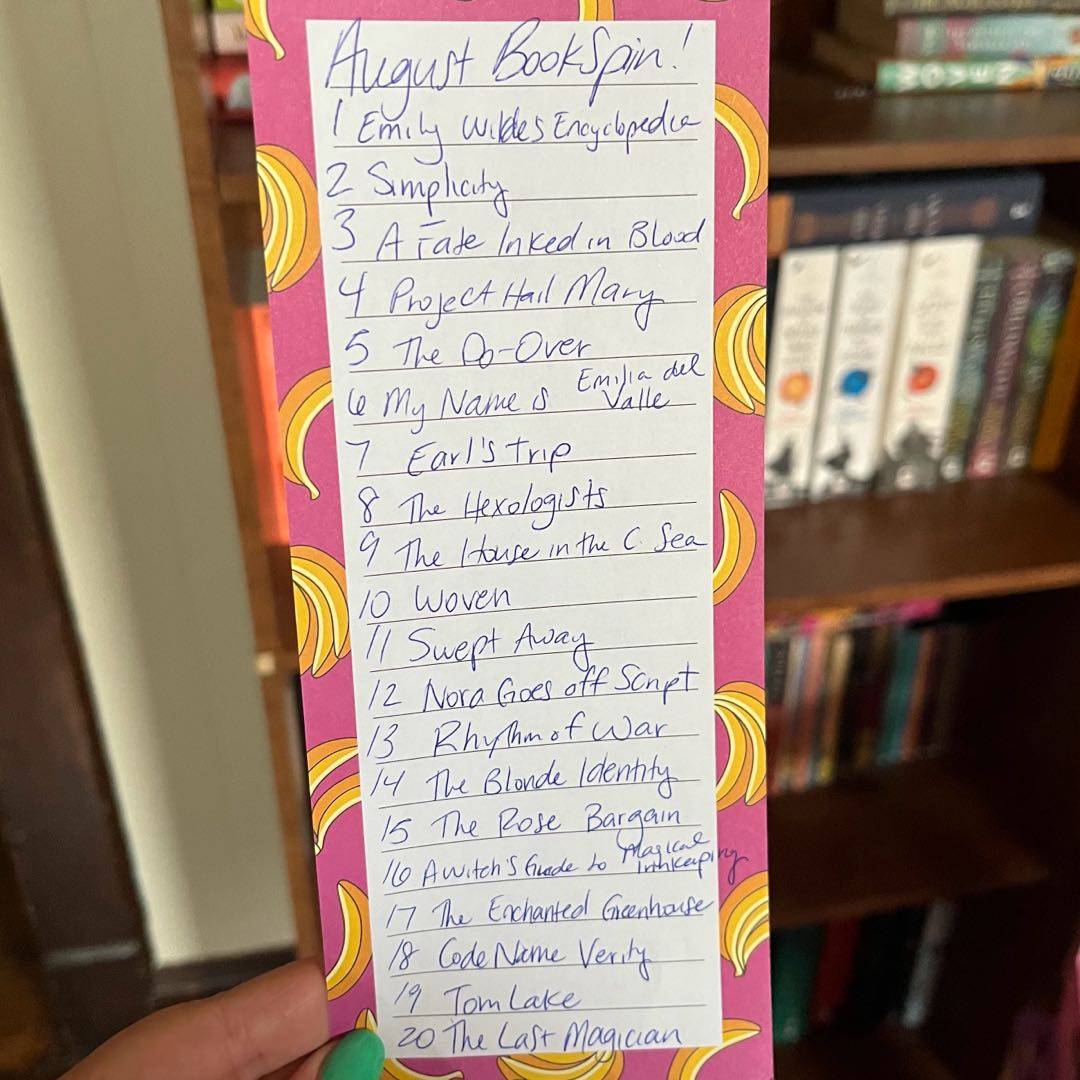 August BookSpin!
1 Emily Wildes Encyclopedia
2 Simplicity
3 A Fate Inked in Blood
4 Project Hail Mary
5 The Do-Over
6 My Name is Emilia del Valle
7 Earl's Trip
8 The Hexologists
9 The House in the C. Sea
10 Woven
11 Swept Away
12 Nora Goes off Script
13 Rhythm of War
14 The Blonde Identity
15 The Rose Bargain
16 A Witch's Guide to Magical Innkeeping
17 The Enchanted Greenhouse
18 Code Name Verity
19 Tom Lake
20 The Last Magician